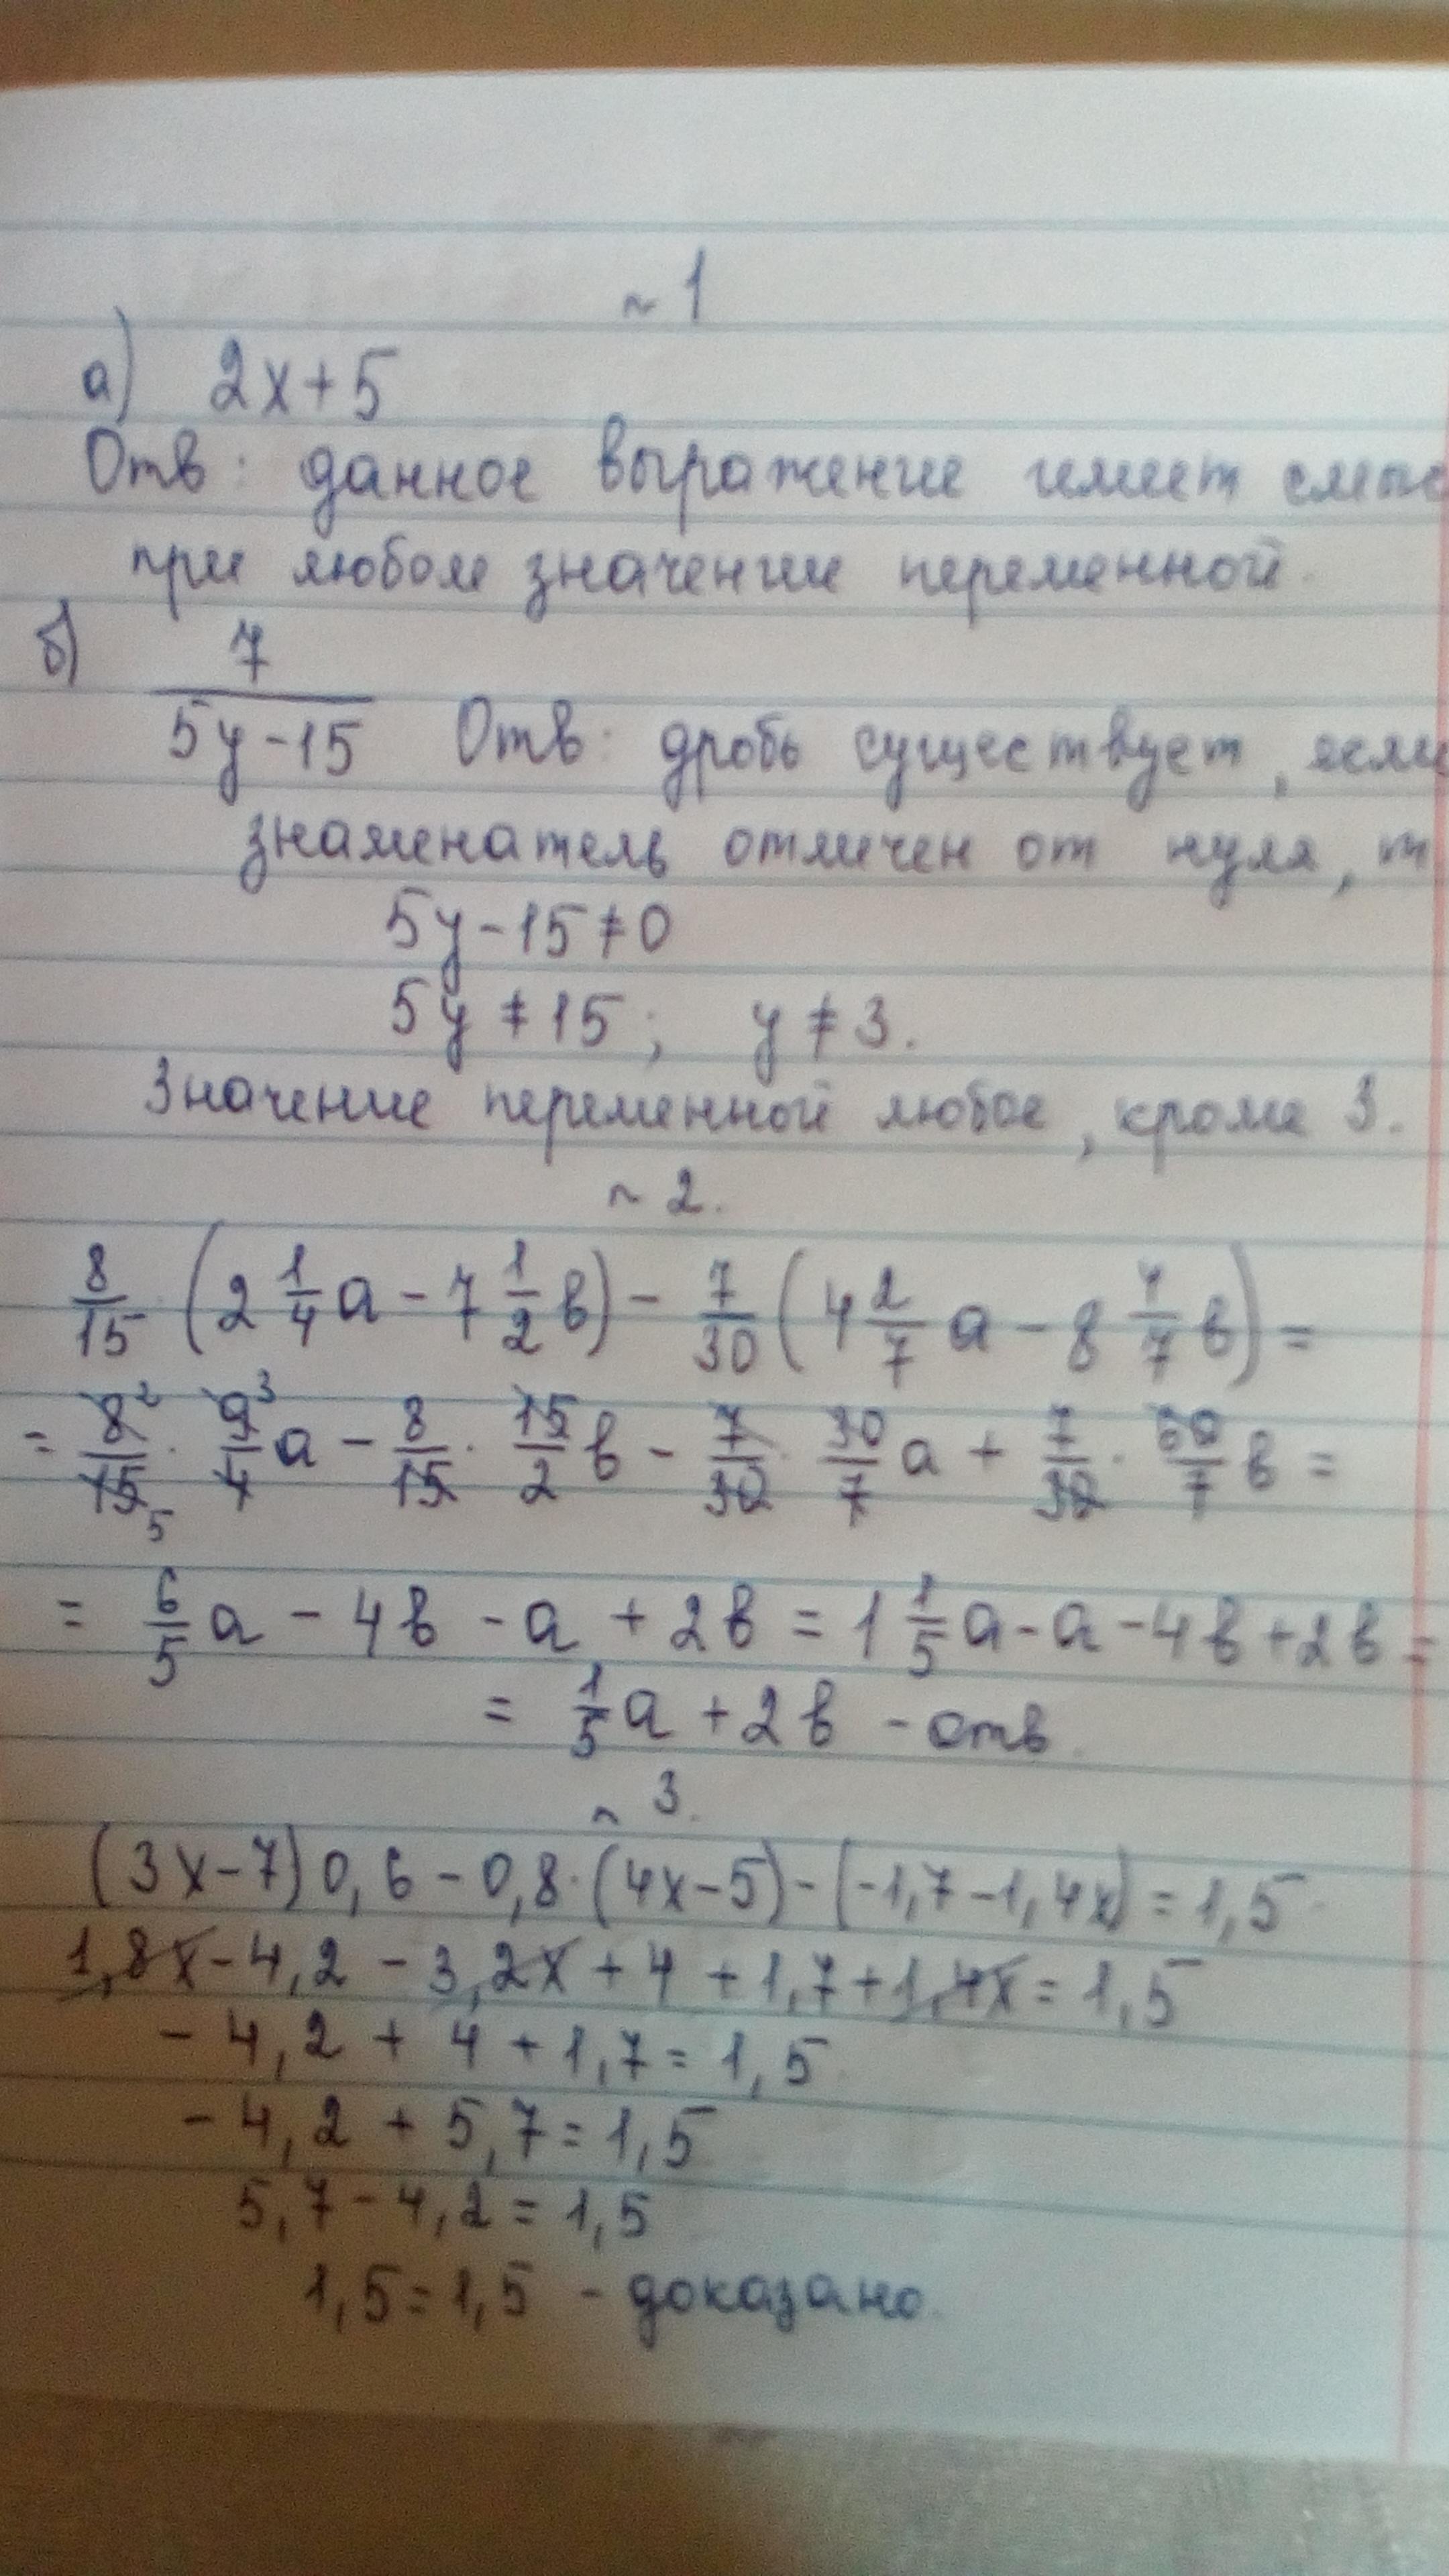 ~ 1
а) 2x+5
Отв: данное выражение имеет смыс
при любом значении переменной.
б) 7/(5y-15) Отв: дробь существует, если
знаменатель отличен от нуля, т
5y-15≠0
5y≠15; y≠3.
Значение переменной любое, кроме 3.
~ 2.
8/15 (2 1/4 a - 7 1/2 в) - 7/30 (4 2/7 a - 8 4/7 в) =
= 8/15 · 9/4 a - 8/15 · 15/2 в - 7/30 · 30/7 a + 7/30 · 60/7 в =
= 6/5 a - 4в - a + 2в = 1 1/5 a - a - 4в + 2в =
= 1/5 a + 2в - отв.
~ 3.
(3x-7)0,6 - 0,8·(4x-5) - (-1,7-1,4x) = 1,5
1,8x - 4,2 - 3,2x + 4 + 1,7 + 1,4x = 1,5
- 4,2 + 4 + 1,7 = 1,5
- 4,2 + 5,7 = 1,5
5,7 - 4,2 = 1,5
1,5 = 1,5 - доказано.